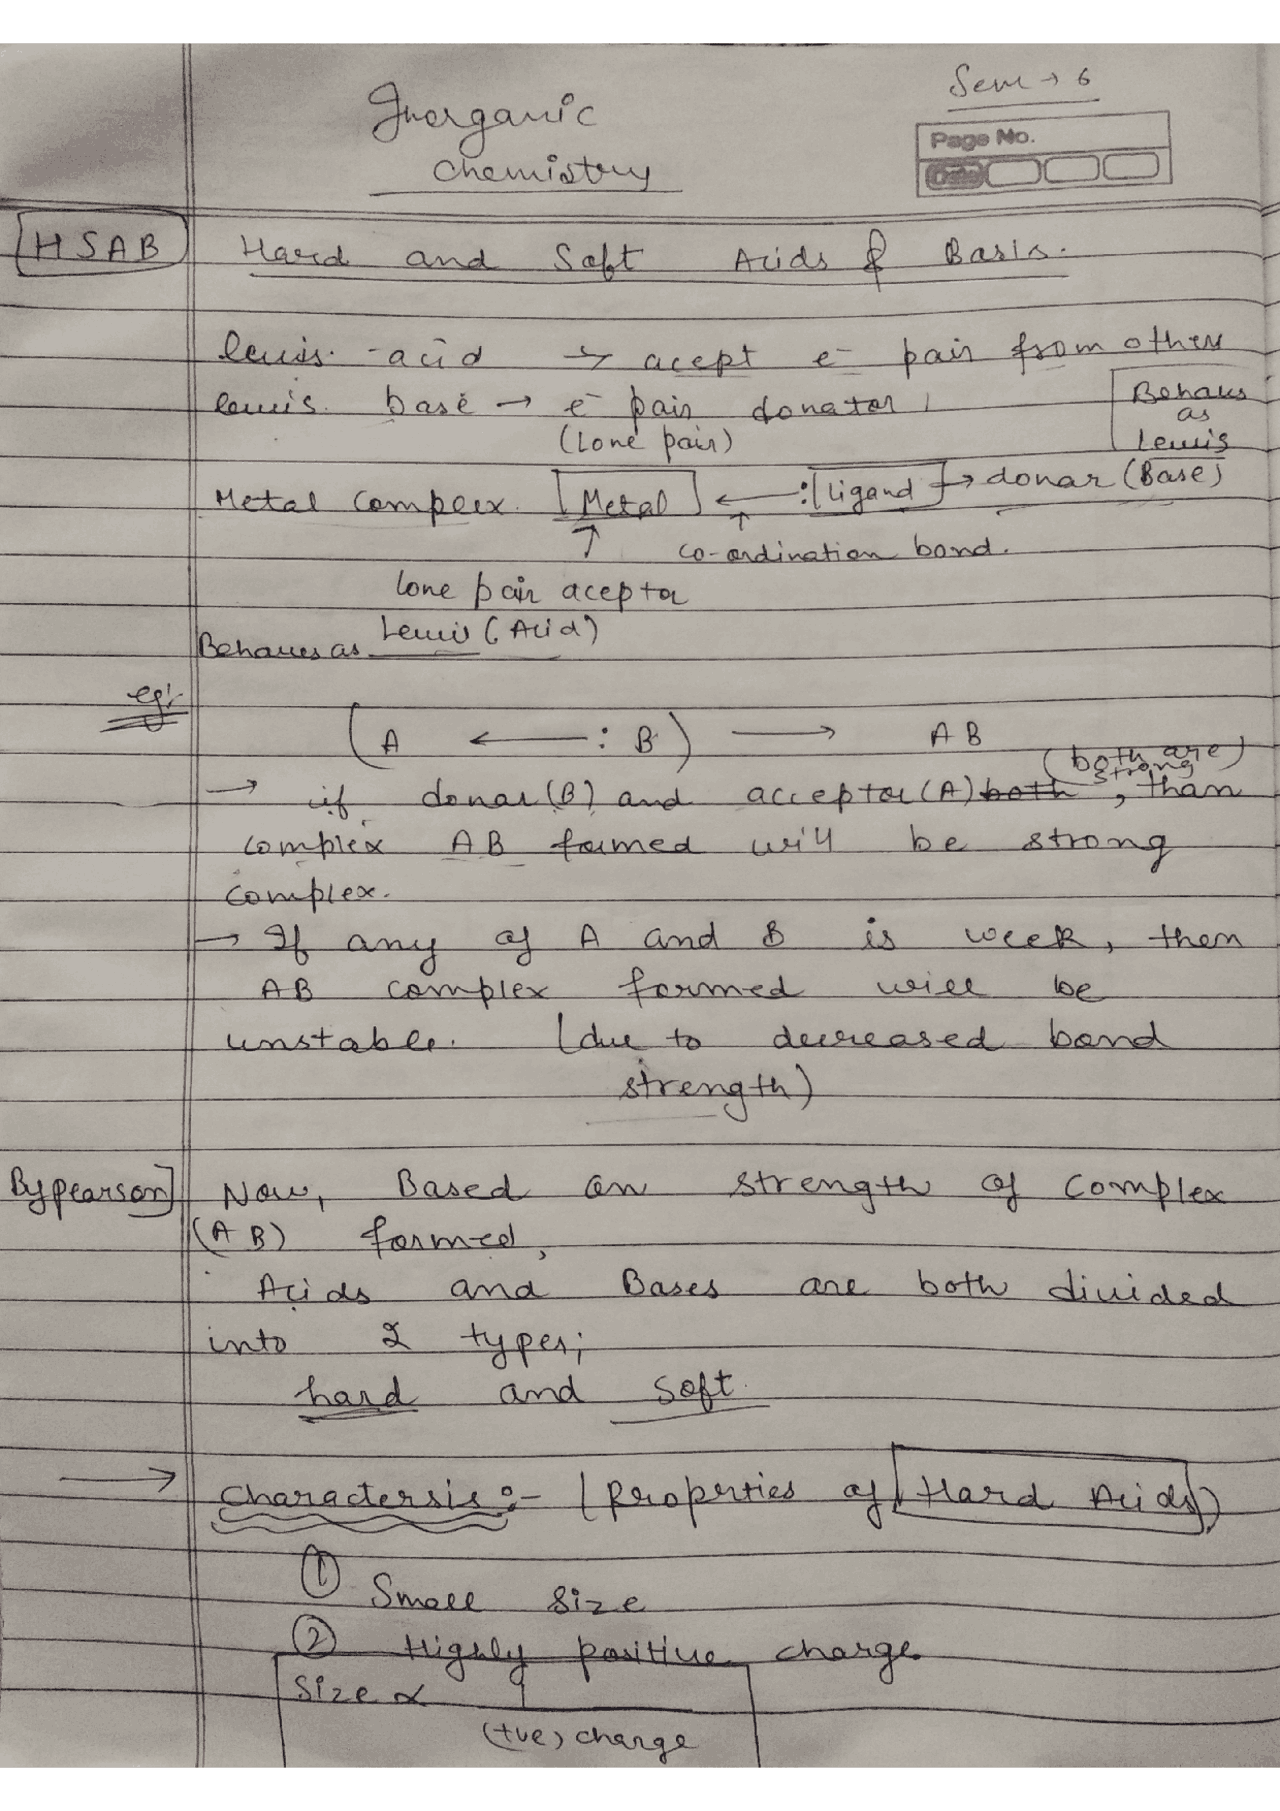 Sem → 6
Inorganic
chemistry
Page No.
Date
HSAB Hard and Soft Acids & Basis.
lewis. acid → acept e- pair from others
lewis. base → e- pair donator
(Lone pair)
Behaves
as
Lewis
Metal Complex. [Metal] ← :[Ligand] → donar (Base)
↑ ↑ co-ordination bond.
lone pair aceptor
Behaves as Lewis (Acid)
eg:-
(A ← : B) → AB
(both are strong)
→ if donar (B) and acceptor (A) both, than
complex AB formed will be strong
complex.
→ If any of A and B is week, then
AB complex formed will be
unstable. (due to decreased bond
strength)
By pearson] Now, Based on strength of complex
(AB) formed,
Acids and Bases are both divided
into 2 types;
hard and soft.
→ Charactersis :- (Properties of Hard Acids)
① Small size
② Highly positive charge
Size ∝ 1
(+ve) charge